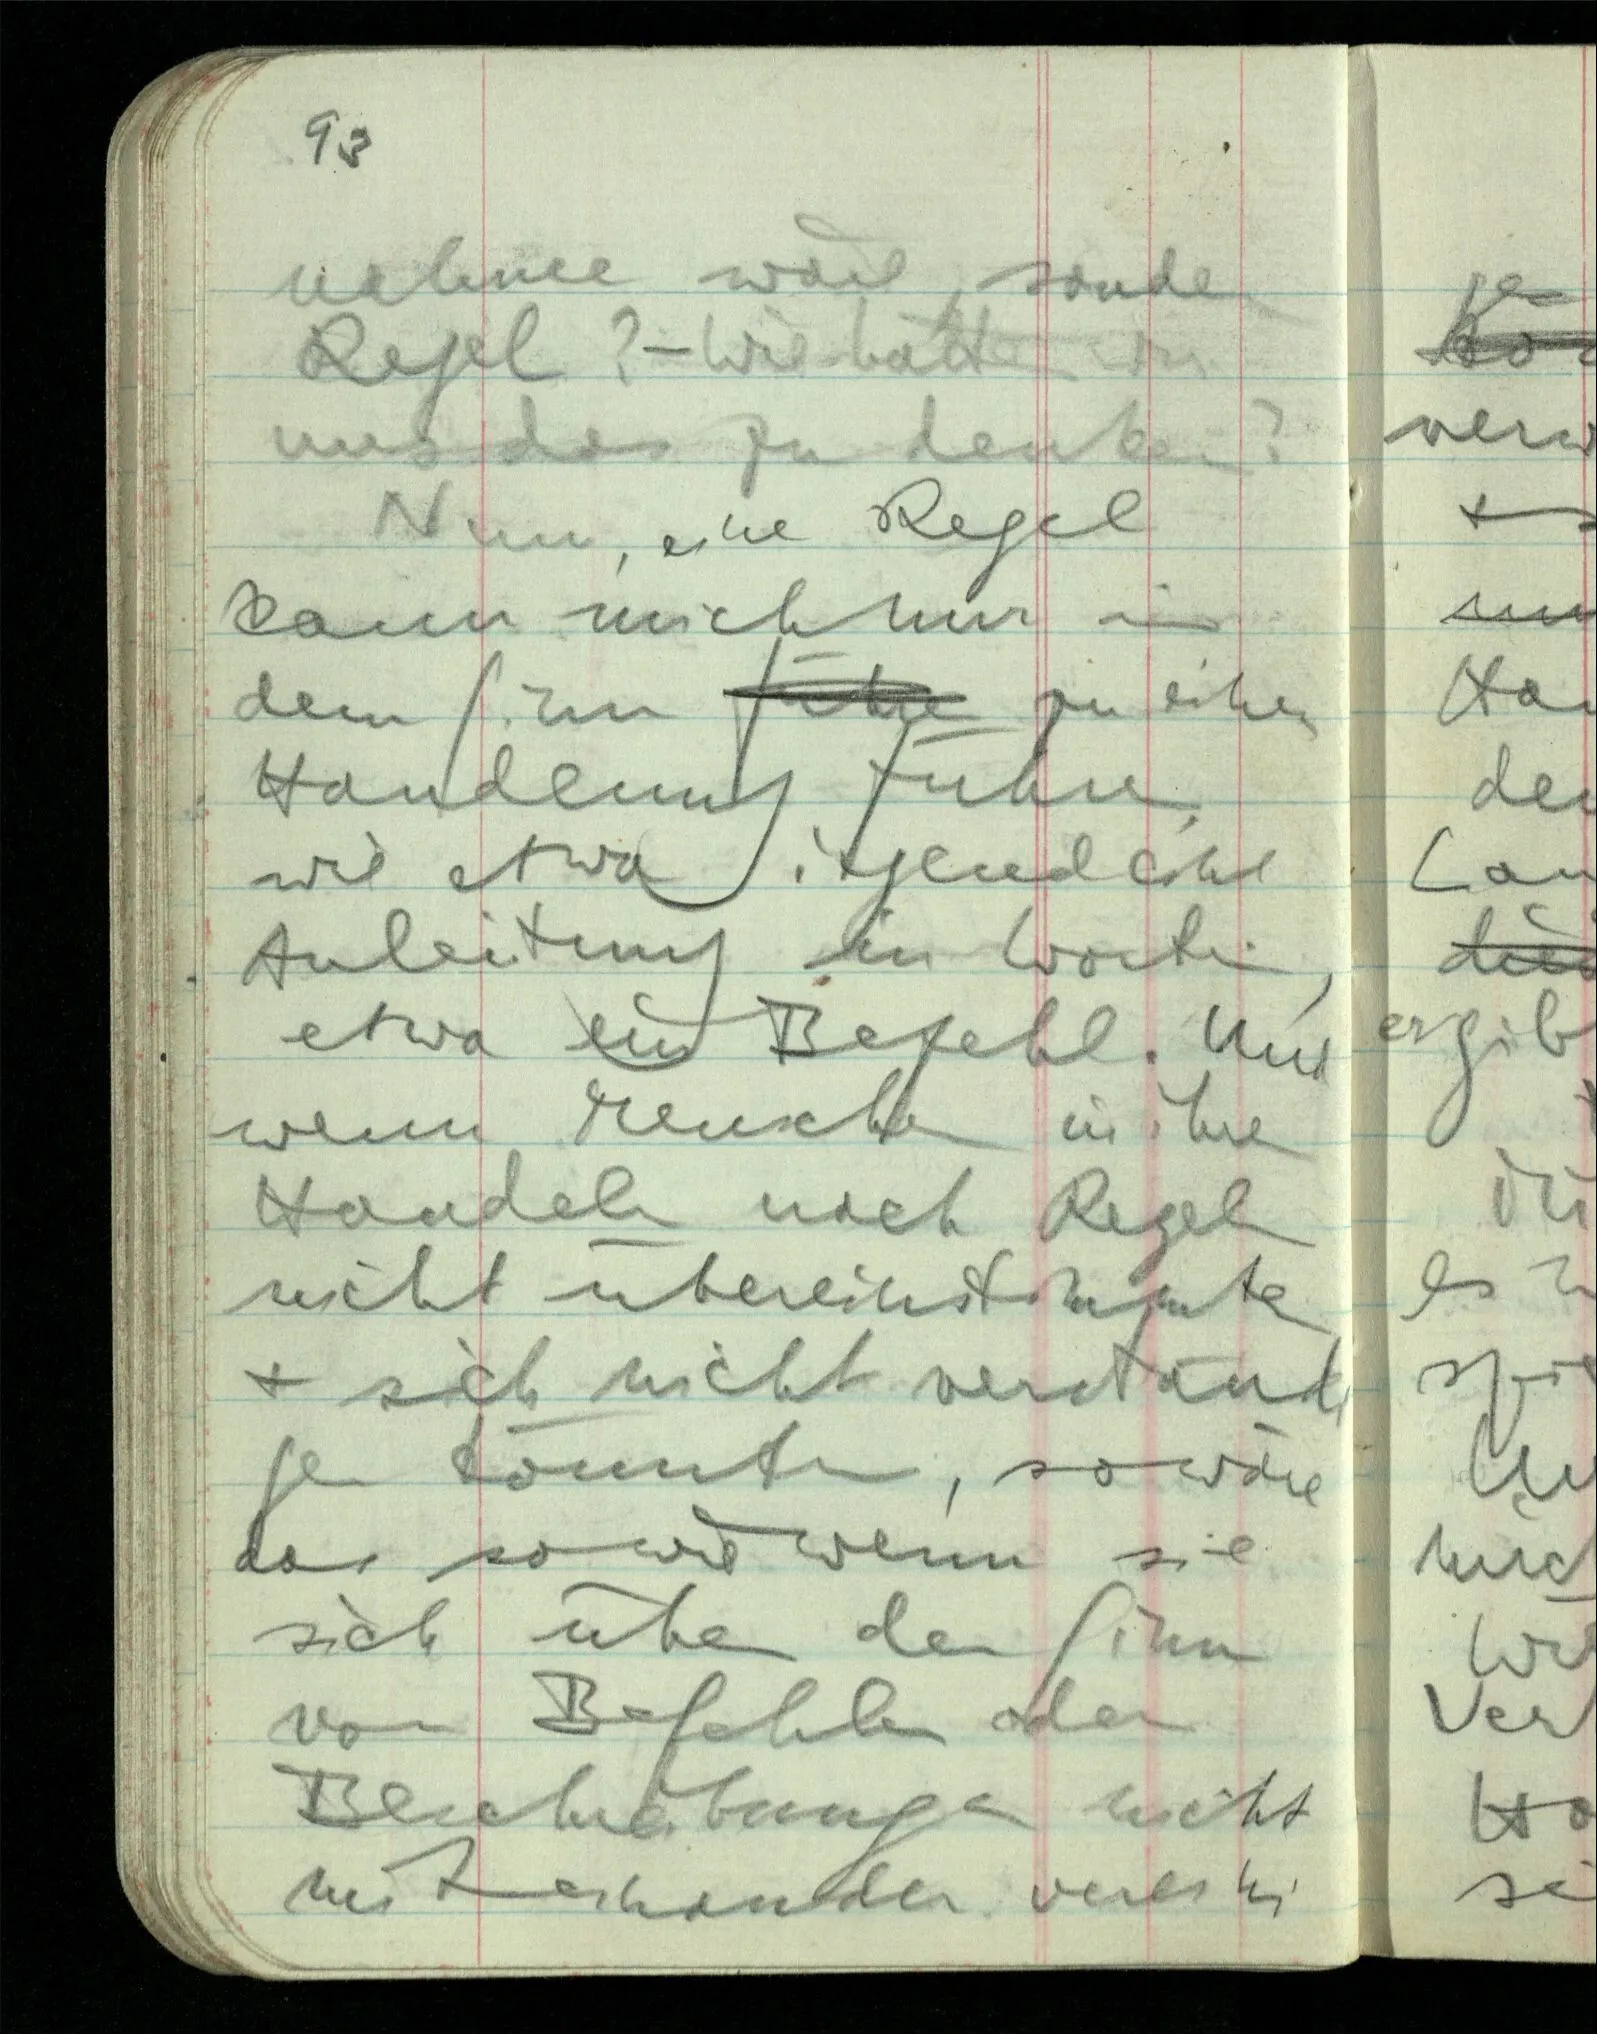 93
nahme wäre, sondern
Regel? – Wie hätten wir
uns das zu denken?
Nun, eine Regel
kann mich nur in
dem Sinn führen zu einer
Handlung führen,
wie etwa irgendeine
Anleitung in Worten,
etwa ein Befehl. Und
wenn Menschen in ihren
Handeln nach Regeln
nicht übereinstimmten
+ sich nicht verständi
gen könnten, so wäre
das so wie wenn sie
sich über den Sinn
von Befehlen oder
Beschreibungen nicht
mit einander verei ni